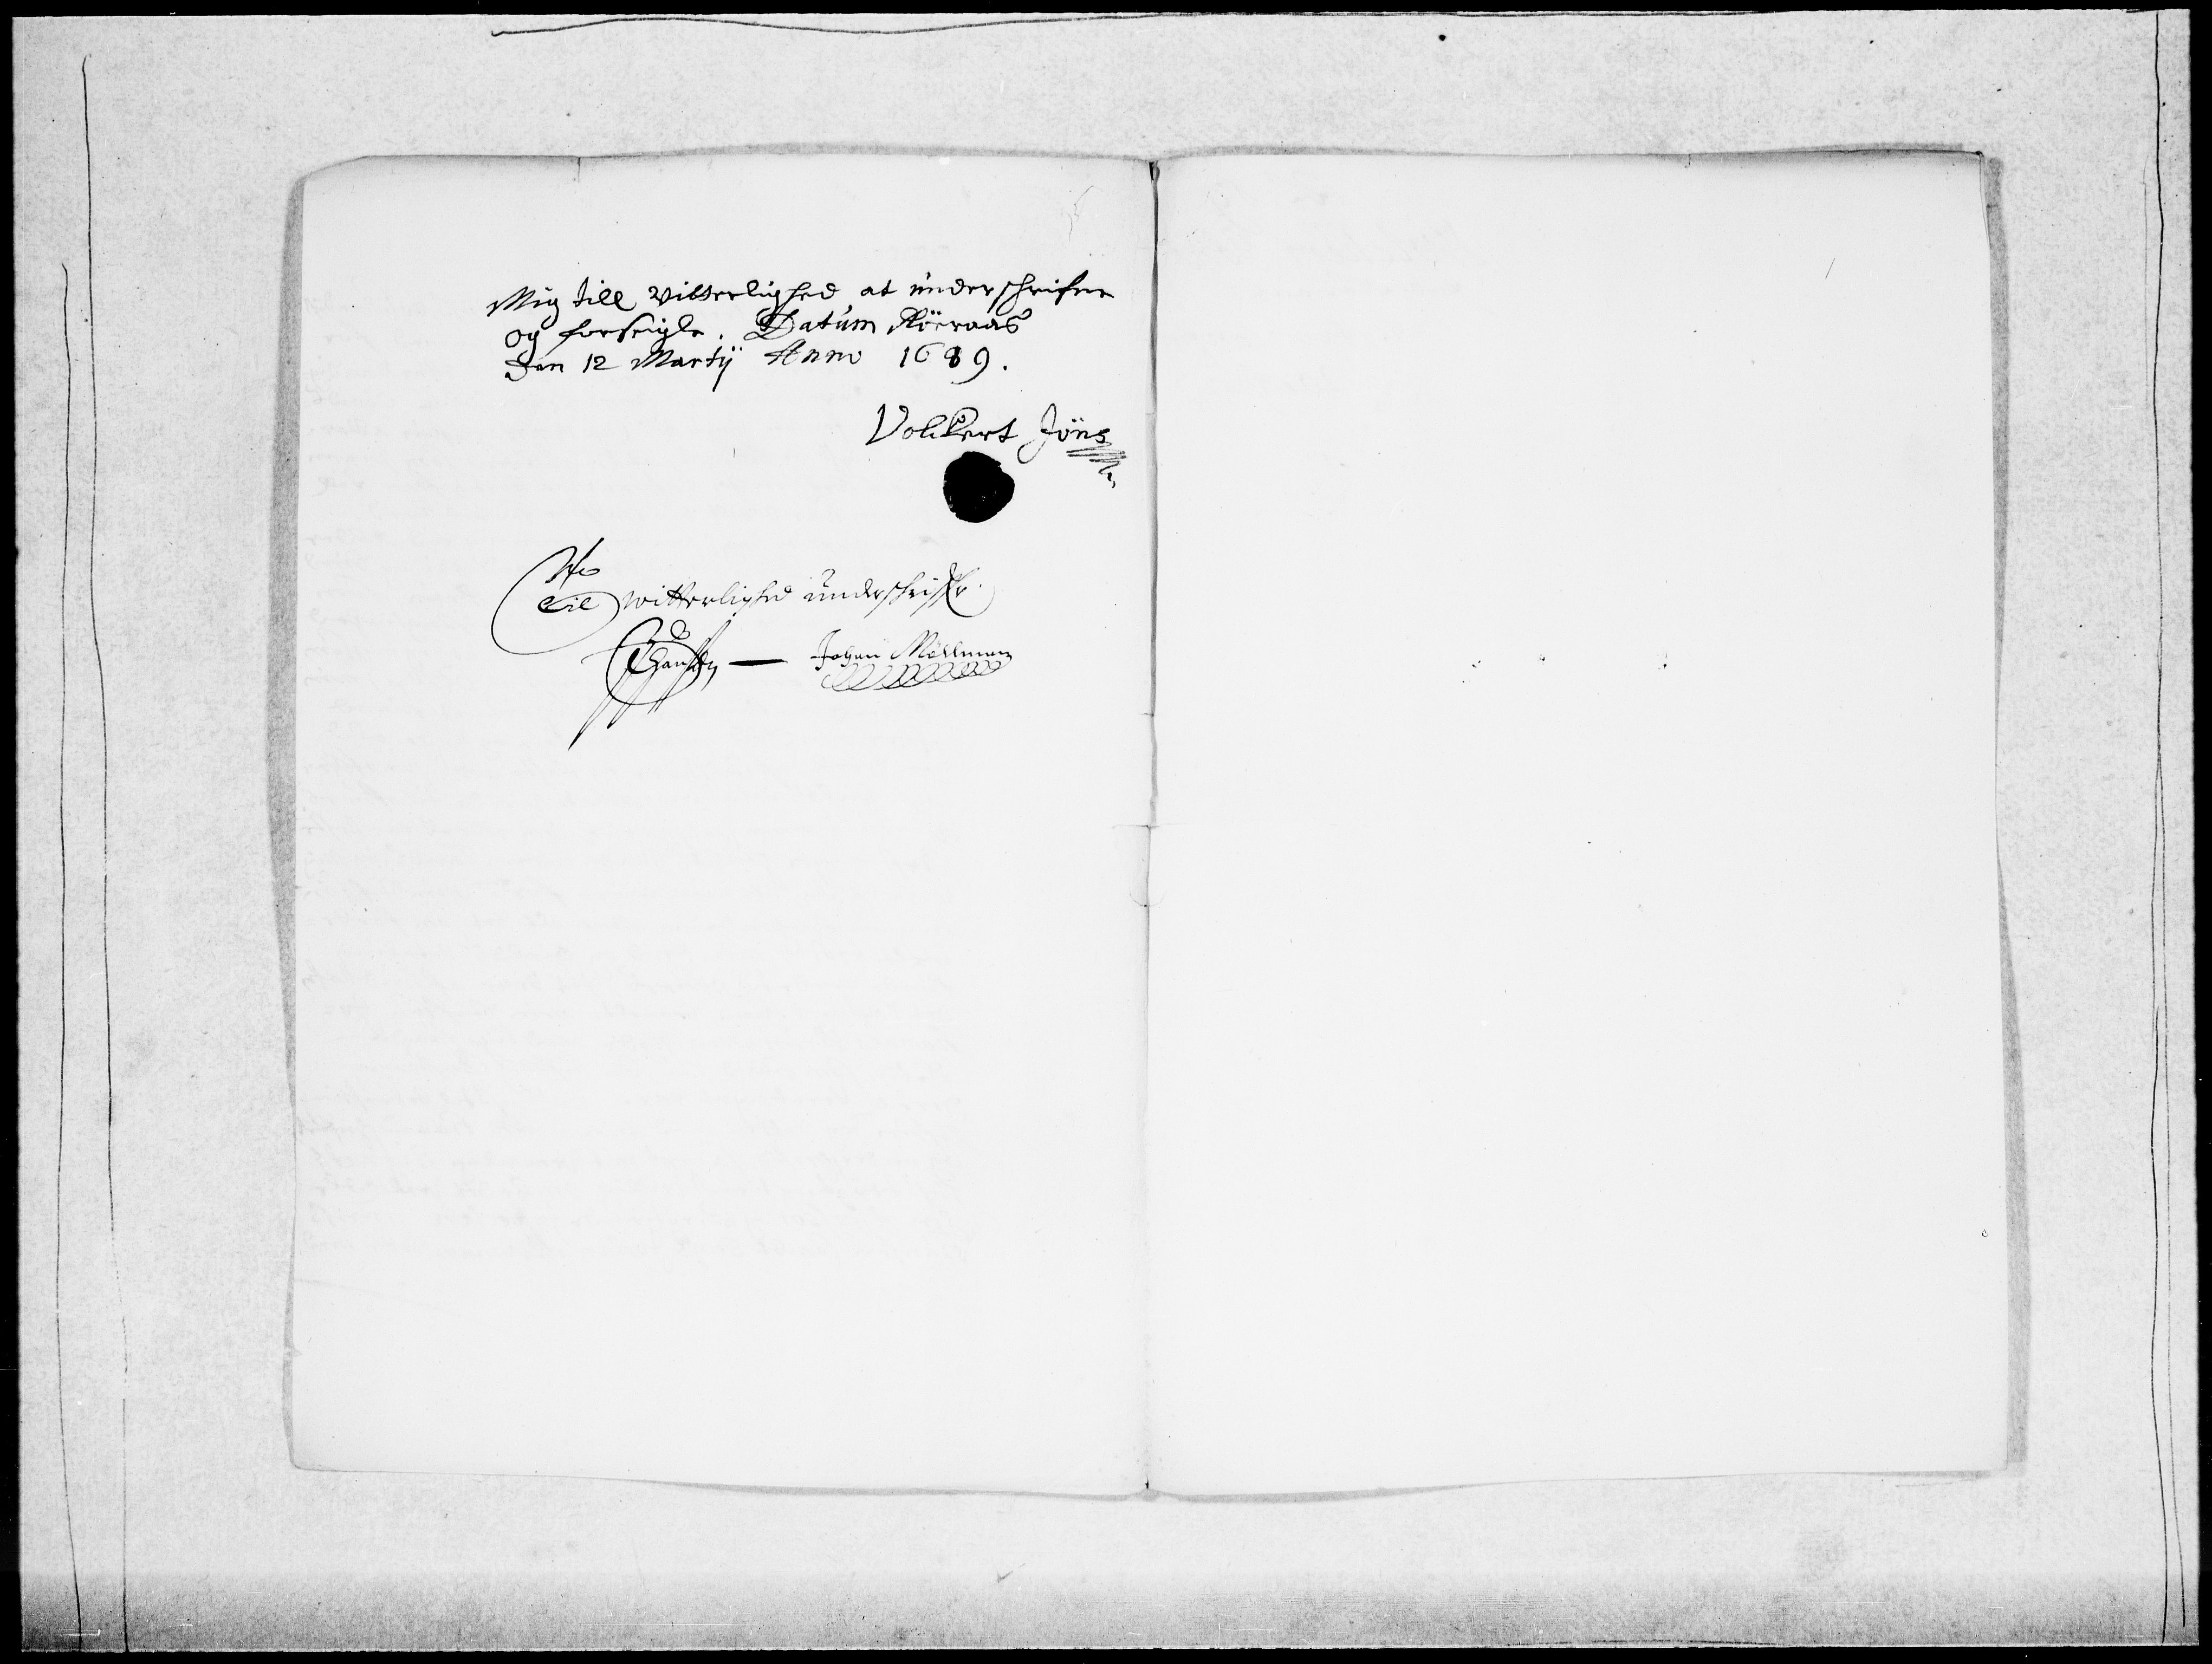 Mig till Vitterlighed at underschrifve
og forseigle. Datum Röeraas
Den 12 Martij Anno 1689.
Volkert Jöns
til witterlighed underschrifver
Johan Möllman